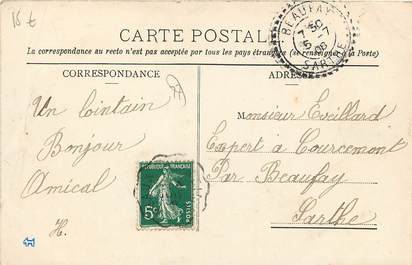 15 €
CARTE POSTALE
La correspondance au recto n'est pas acceptée par tous les pays étrangers (se renseigner à la Poste)
BEAUFAY
7 30
5 -7
08
SARTHE
CORRESPONDANCE
ADRESSE
Un lointain
Bonjour
Amical
H.
Monsieur Eveillard
Expert à Courcemont
Par Beaufay
Sarthe
REPUBLIQUE FRANÇAISE
5c
POSTES